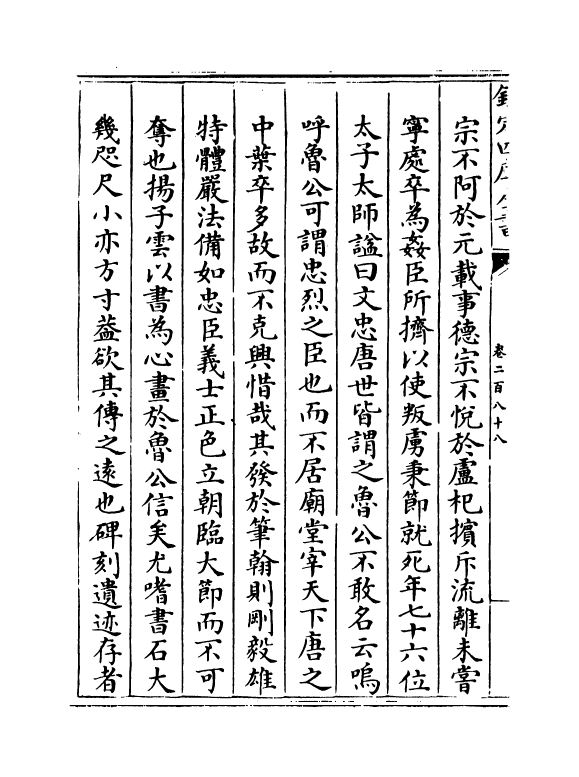 欽定四庫全書
卷二百八十八
宗不阿於元載事德宗不悅於盧杞擯斥流離未嘗
寧處卒為姦臣所擠以使叛虜秉節就死年七十六位
太子太師諡曰文忠唐世皆謂之魯公不敢名云嗚
呼魯公可謂忠烈之臣也而不居廟堂宰天下唐之
中葉卒多故而不克興惜哉其發於筆翰則剛毅雄
特體嚴法備如忠臣義士正色立朝臨大節而不可
奪也揚子雲以書為心畫於魯公信矣尤嗜書石大
幾咫尺小亦方寸葢欲其傳之遠也碑刻遺迹存者